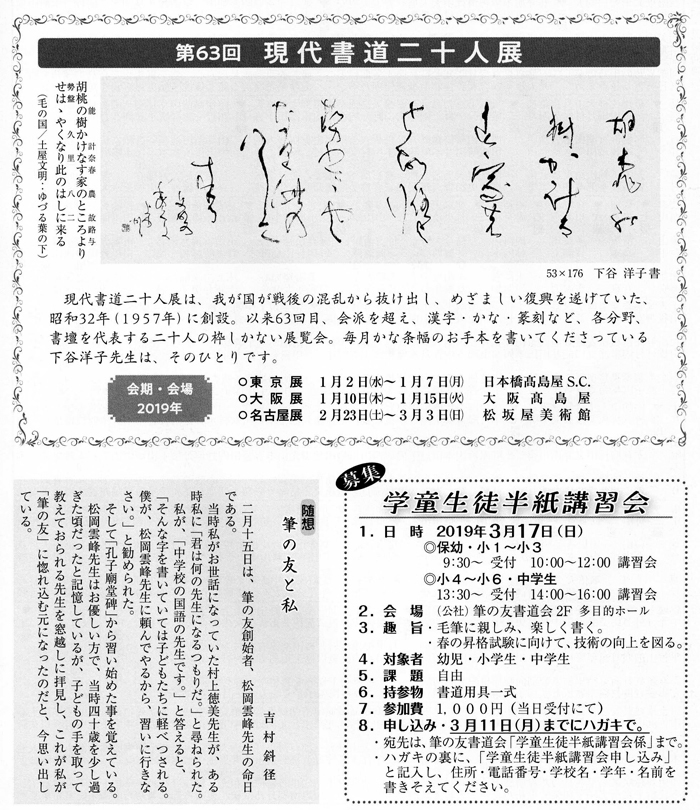 第63回 現代書道二十人展
胡桃の樹かけなす家のところより
能 計奈春 農 故路与
せは丶やくなり此のはしに来る
勢盤 久里 八二
(毛の国/土屋文明:ゆづる葉の下)
53×176 下谷 洋子書
現代書道二十人展は、我が国が戦後の混乱から抜け出し、めざましい復興を遂げていた、
昭和32年(1957年)に創設。以来63回目、会派を超え、漢字・かな・篆刻など、各分野、
書壇を代表する二十人の枠しかない展覧会。毎月かな条幅のお手本を書いてくださっている
下谷洋子先生は、そのひとりです。
会期・会場
2019年
○東京展 1月2日㈬〜1月7日㈪ 日本橋髙島屋S.C.
○大阪展 1月10日㈭〜1月15日㈫ 大阪髙島屋
○名古屋展 2月23日㈯〜3月3日㈰ 松坂屋美術館
随想
筆の友と私
吉村斜径
二月十五日は、筆の友創始者、松岡雲峰先生の命日
である。
当時私がお世話になっていた村上徳美先生が、ある
時私に「君は何の先生になるつもりだ。」と尋ねられた。
私が、「中学校の国語の先生です。」と答えると、
「そんな字を書いていては子どもたちに軽べつされる。
僕が、松岡雲峰先生に頼んでやるから、習いに行きな
さい。」と勧められた。
そして「孔子廟堂碑」から習い始めた事を覚えている。
松岡雲峰先生はお優しい方で、当時四十歳を少し過
ぎた頃だったと記憶しているが、子どもの手を取って
教えておられる先生を窓越しに拝見し、これが私が
「筆の友」に惚れ込む元になったのだと、今思い出し
ている。
募集
学童生徒半紙講習会
1.日 時 2019年3月17日(日)
◎保幼・小1〜小3
9:30〜 受付 10:00〜12:00 講習会
◎小4〜小6・中学生
13:30〜 受付 14:00〜16:00 講習会
2.会 場 (公社)筆の友書道会2F 多目的ホール
3.趣 旨・毛筆に親しみ、楽しく書く。
・春の昇格試験に向けて、技術の向上を図る。
4.対象者 幼児・小学生・中学生
5.課 題 自由
6.持参物 書道用具一式
7.参加費 1,000円(当日受付にて)
8.申し込み・3月11日(月)までにハガキで。
・宛先は、筆の友書道会「学童生徒半紙講習会係」まで。
・ハガキの裏に、「学童生徒半紙講習会申し込み」
と記入し、住所・電話番号・学校名・学年・名前を
書きそえてください。